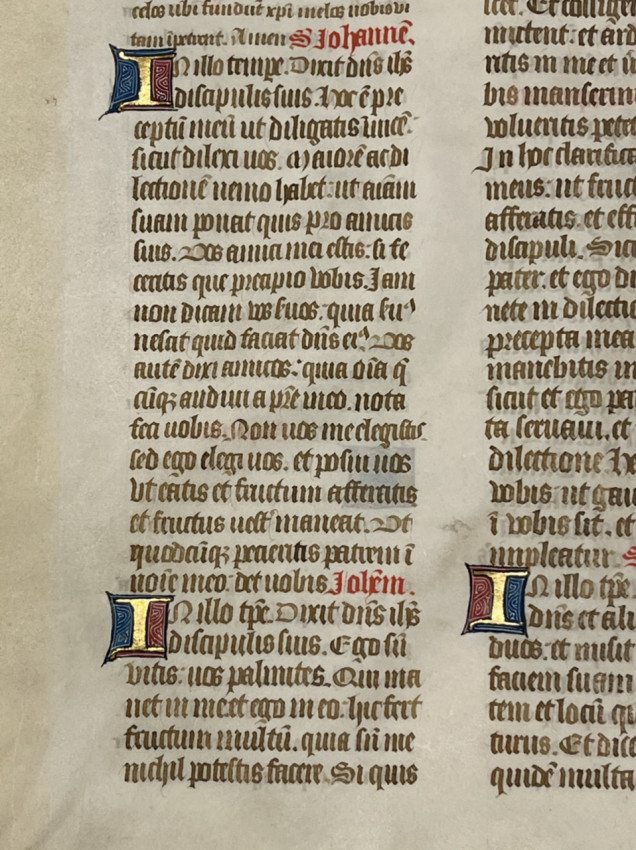 celos ubi fundūt xp̄i melos uobis ui
tam īpetrent. Amen S Johannē.
In illo tempe. Dixit dn̄s ih̄s
discipulis suis. Hoc ē pre
ceptū meū ut diligatis īuicē.
sicut dilexi uos. Maiorē ac di
lectionē nemo habet: ut aīam
suam ponat quis pro amicis
suis. Vos amici mei estis: si fe
ceritis que precipio vobis. Jam
non dicam vos seruos: quia seruꝰ
nescit quid faciat dn̄s eiꝰ. Vos
autē dixi amicos: quia oīa q̄
cūqꝫ audiui a p̄re meo. nota
feci uobis. Non uos me elegistis
sed ego elegi uos. et posui uos
vt eatis et fructum afferatis
et fructus uest̄ maneat. Vt
quodcūqꝫ pecieritis patrem ī
noīe meo: det uobis Joh̄em.
In illo tp̄e. Dixit dn̄s ih̄s
discipulis suis. Ego sū
vitis: uos palmites. Qui ma
net in me et ego in eo: hic fert
fructum multū. quia sine me
nichil potestis facere. Si quis
icet. Et collige
mittent: et ard
ritis in me et u
bis manserin
volueritis pete
In hoc clarifica
meus: ut fruct
afferatis. et eff
discipuli. Sic
pater: et ego di
nete in dilecti
precepta mea
manebitis in
sicut et ego pa
ta seruaui. et
dilectione. He
vobis: ut gau
ī vobis sit. et
impleatur S
In illo tp̄e
dn̄s et ali
duos: et misit
faciem suam
tem et locū q
turus. Et dice
quidē multa